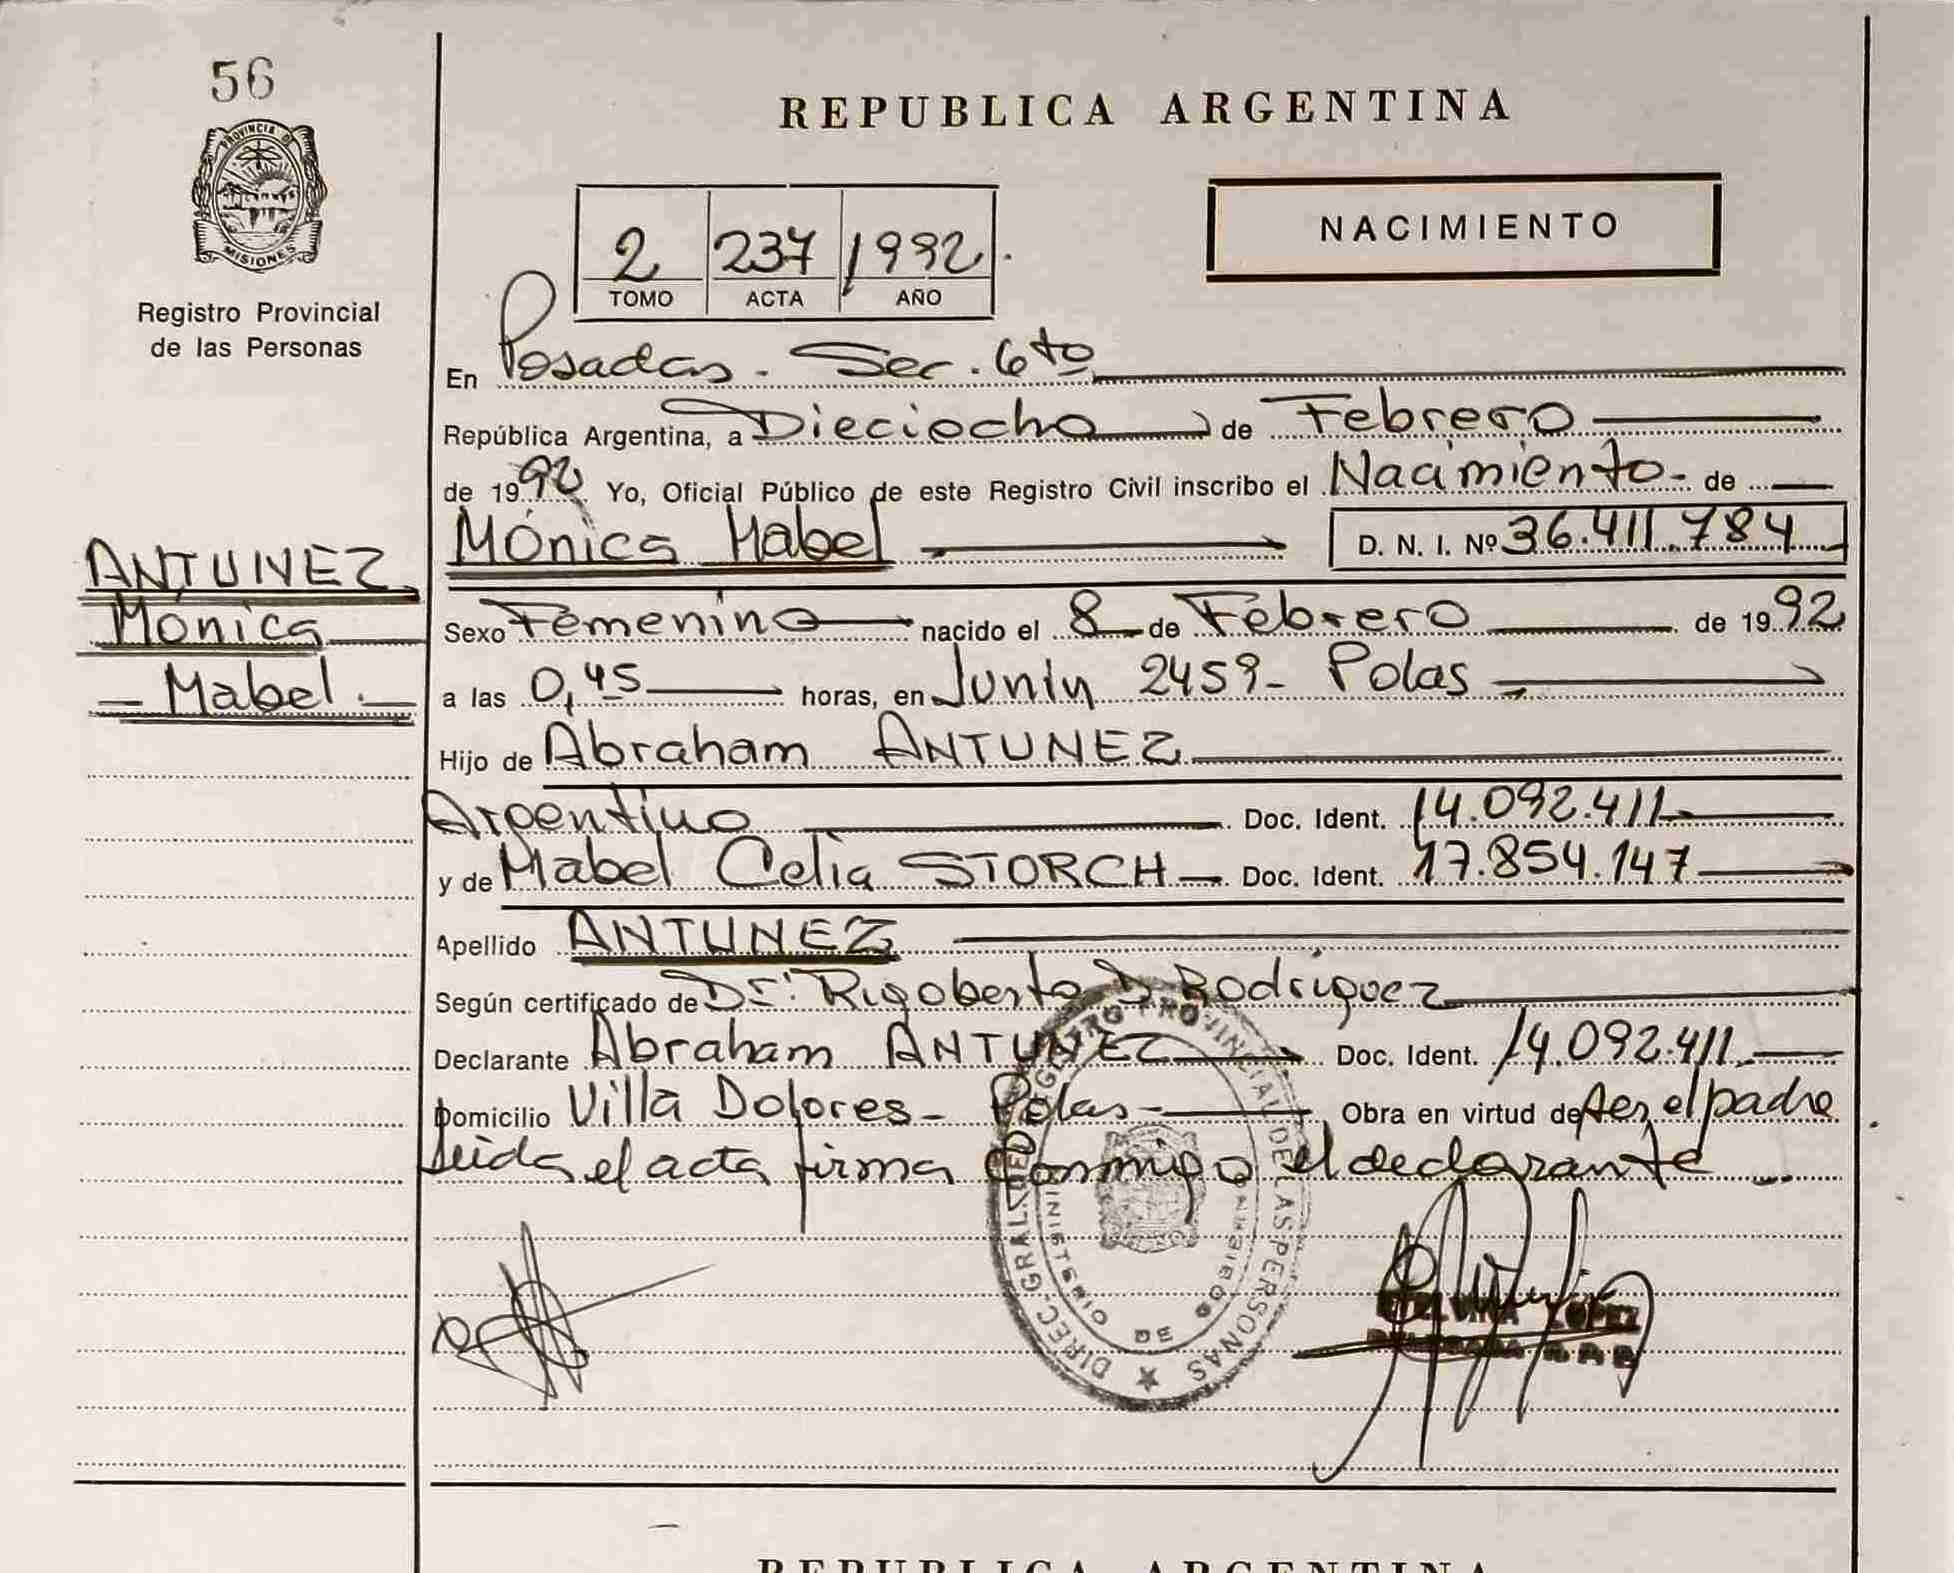 56
PROVINCIA DE
MISIONES
Registro Provincial
de las Personas
ANTUNEZ
Mónica
- Mabel. -
REPUBLICA ARGENTINA
NACIMIENTO
2 237 1992
TOMO ACTA AÑO
En Posadas. Sec. 6to
República Argentina, a Dieciocho de Febrero
de 1992 Yo, Oficial Público de este Registro Civil inscribo el Nacimiento- de
Mónica Mabel D. N. I. Nº 36.411.784
Sexo Femenino nacido el 8 de Febrero de 1992
a las 0,45 horas, en Junin 2459- Pdas
Hijo de Abraham ANTUNEZ
Argentino Doc. Ident. 14.092.411
y de Mabel Celia STORCH Doc. Ident. 17.854.147
Apellido ANTUNEZ
Según certificado de Dr. Rigoberto D Rodriguez
Declarante Abraham ANTUNEZ Doc. Ident. 14.092.411
Domicilio Villa Dolores- Pdas- Obra en virtud de ser el padre
Leida el acta firma conmigo el declarante
DIREC. GRAL. DEL REGISTRO PROVINCIAL DE LAS PERSONAS
MINISTERIO DE GOBIERNO
LOPEZ
REPUBLICA ARGENTINA